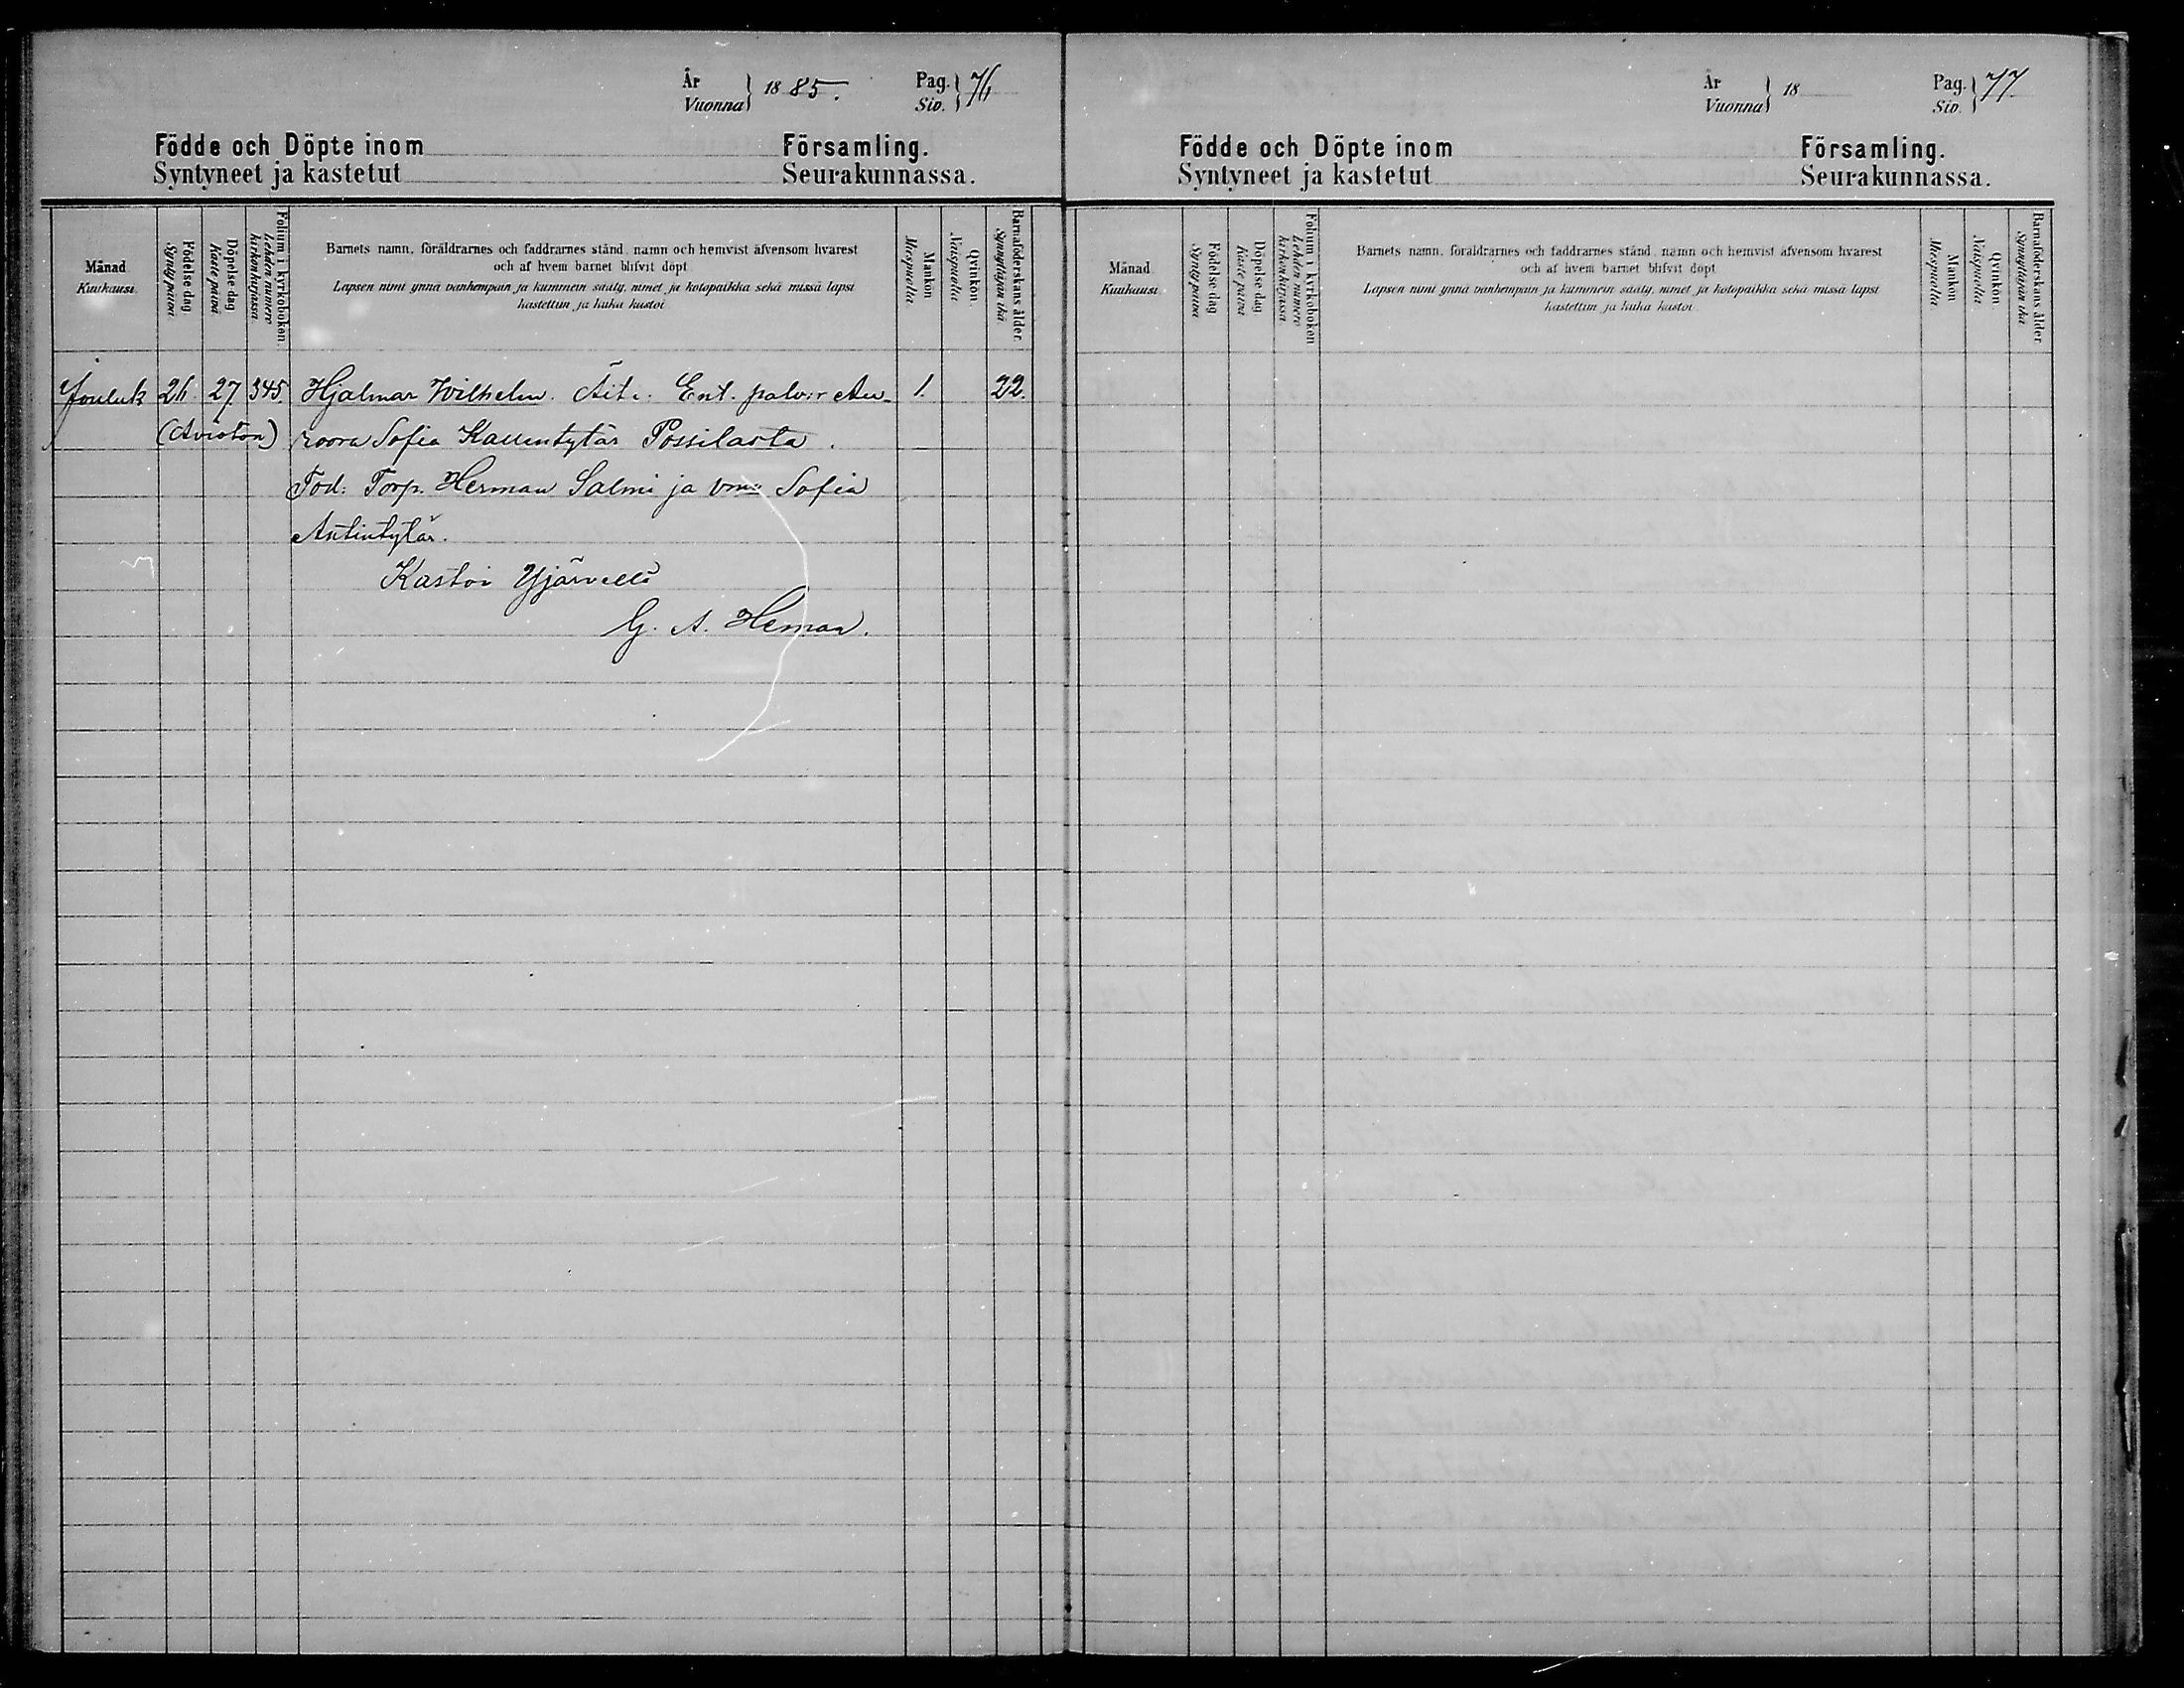 År
Vuonna } 1885. Pag.
Siv. } 76
Födde och Döpte inom Församling.
Syntyneet ja kastetut Seurakunnassa.
Månad
Kuukausi
Födelse dag
Synty päivä
Döpelse dag
Kaste päivä
Folium i kyrkoboken.
Lehden numero
kirkonkirjassa.
Barnets namn, föräldrarnes och faddrarnes stånd, namn och hemvist äfvensom hvarest
och af hvem barnet blifvit döpt
Lapsen nimi ynnä vanhempain ja kummein sääty, nimet ja kotopaikka sekä missä lapsi
kastettiin ja kuka kastoi
Mankön
Miespuolia
Qvinkön
Naispuolia
Barnaföderskans ålder.
Synnyttäjän ikä.
Jouluk 26 27 345. Hjalmar Wilhelm. Äiti: Ent. palv:r Au- 1. 22.
(Avioton) roora Sofia Kallentytär Possilasta.
Tod: Torp. Herman Salmi ja vmo Sofia
Antintytär.
Kastoi Yjärvellä
G. A. Heman.
År
Vuonna } 18 Pag.
Siv. } 77
Födde och Döpte inom Församling.
Syntyneet ja kastetut Seurakunnassa.
Månad
Kuukausi
Födelse dag
Synty päivä
Döpelse dag
Kaste päivä
Folium i kyrkoboken
Lehden numero
kirkonkirjassa.
Barnets namn, föräldrarnes och faddrarnes stånd, namn och hemvist äfvensom hvarest
och af hvem barnet blifvit döpt
Lapsen nimi ynnä vanhempain ja kummein sääty, nimet ja kotopaikka sekä missä lapsi
kastettiin ja kuka kastoi
Mankön
Miespuolia
Qvinkön
Naispuolia
Barnaföderskans ålder
Synnyttäjän ikä